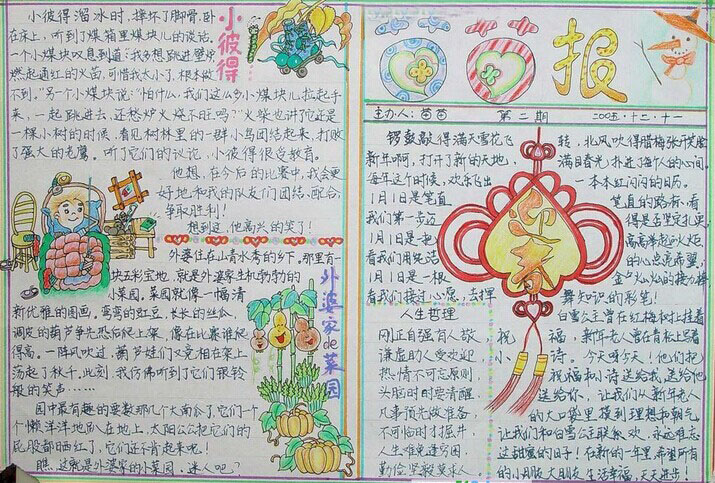 小彼得溜冰时,摔坏了脚骨,卧
在床上,听到了煤箱里煤块儿的谈话。
一个小煤块叹息到道:"我多想跳进壁炉
燃起通红的火苗,可惜我太小了,根本做
不到。"另一个小煤块说:"怕什么,我们这么多小煤块儿拉起手
来,一起跳进去,还愁炉火烧不旺吗?"火柴也讲了它还是
一棵小树的时候,看见树林里的一群小鸟团结起来,打败
了强大的老鹰。听了它们的议论,小彼得很受教育。
他想,在今后的比赛中,我会更
好地和我的队友们团结、配合,
争取胜利!
想到这,他高兴的笑了!
小彼得…
外婆住在山青水秀的乡下,那里有一
块五彩宝地,就是外婆家生机勃勃的
小菜园,菜园就像一幅清
新优雅的图画。弯弯的豇豆、长长的丝瓜、
调皮的葫芦争先恐后爬上架,像在比赛谁爬
得高。一阵风吹过,葫芦娃们又竟相在架上
荡起了秋千,此刻,我仿佛听到了它们银铃
般的笑声……
园中最有趣的要数那几个大南瓜了,它们一个
个懒洋洋地趴在地上,太阳公公把它们的
屁股都晒红了,它们还不肯起来呢!
瞧,这就是外婆家的小菜园,迷人吧?
外婆家de菜园
报
主办人:苗苗 第二期 2005.十二.十一
锣鼓敲得满天雪花飞 转,北风吹得腊梅张开笑脸
新年啊,打开了新的天地, 满目春光扑进了每个人的心间。
每年这个时候,欢乐飞出 一本本红闪闪的日历。
1月1日是笔直 笔直的路标,看
我们第一步迈 得是否坚定扎实,
1月1日是一把 高高举起的火炬
看我们用纯洁 的心点亮希望,
1月1日是一根 金灿灿的接力棒
看我们接过心愿,去挥 舞知识的彩笔!
迎春
人生哲理
刚正自强有人敬,
谦虚助人受欢迎
热情不可忘原则
头脑时时要清醒
凡事预先做准备,
不可临时才掘井
人生难免遭穷困
勤俭坚毅莫求人
白雪公主曾在红梅树上挂着
祝福,新年老人曾在青松上写着
小诗。今天呀今天!他们把
祝福和小诗送给我,送给他
送给你,让我们从新年老人
的大口袋里摸到理想和朝气
让我们和白雪公主联系欢,永远难忘
这甜蜜的日子!在新的一年里希望所有
的小朋友大朋友生活幸福,天天进步!